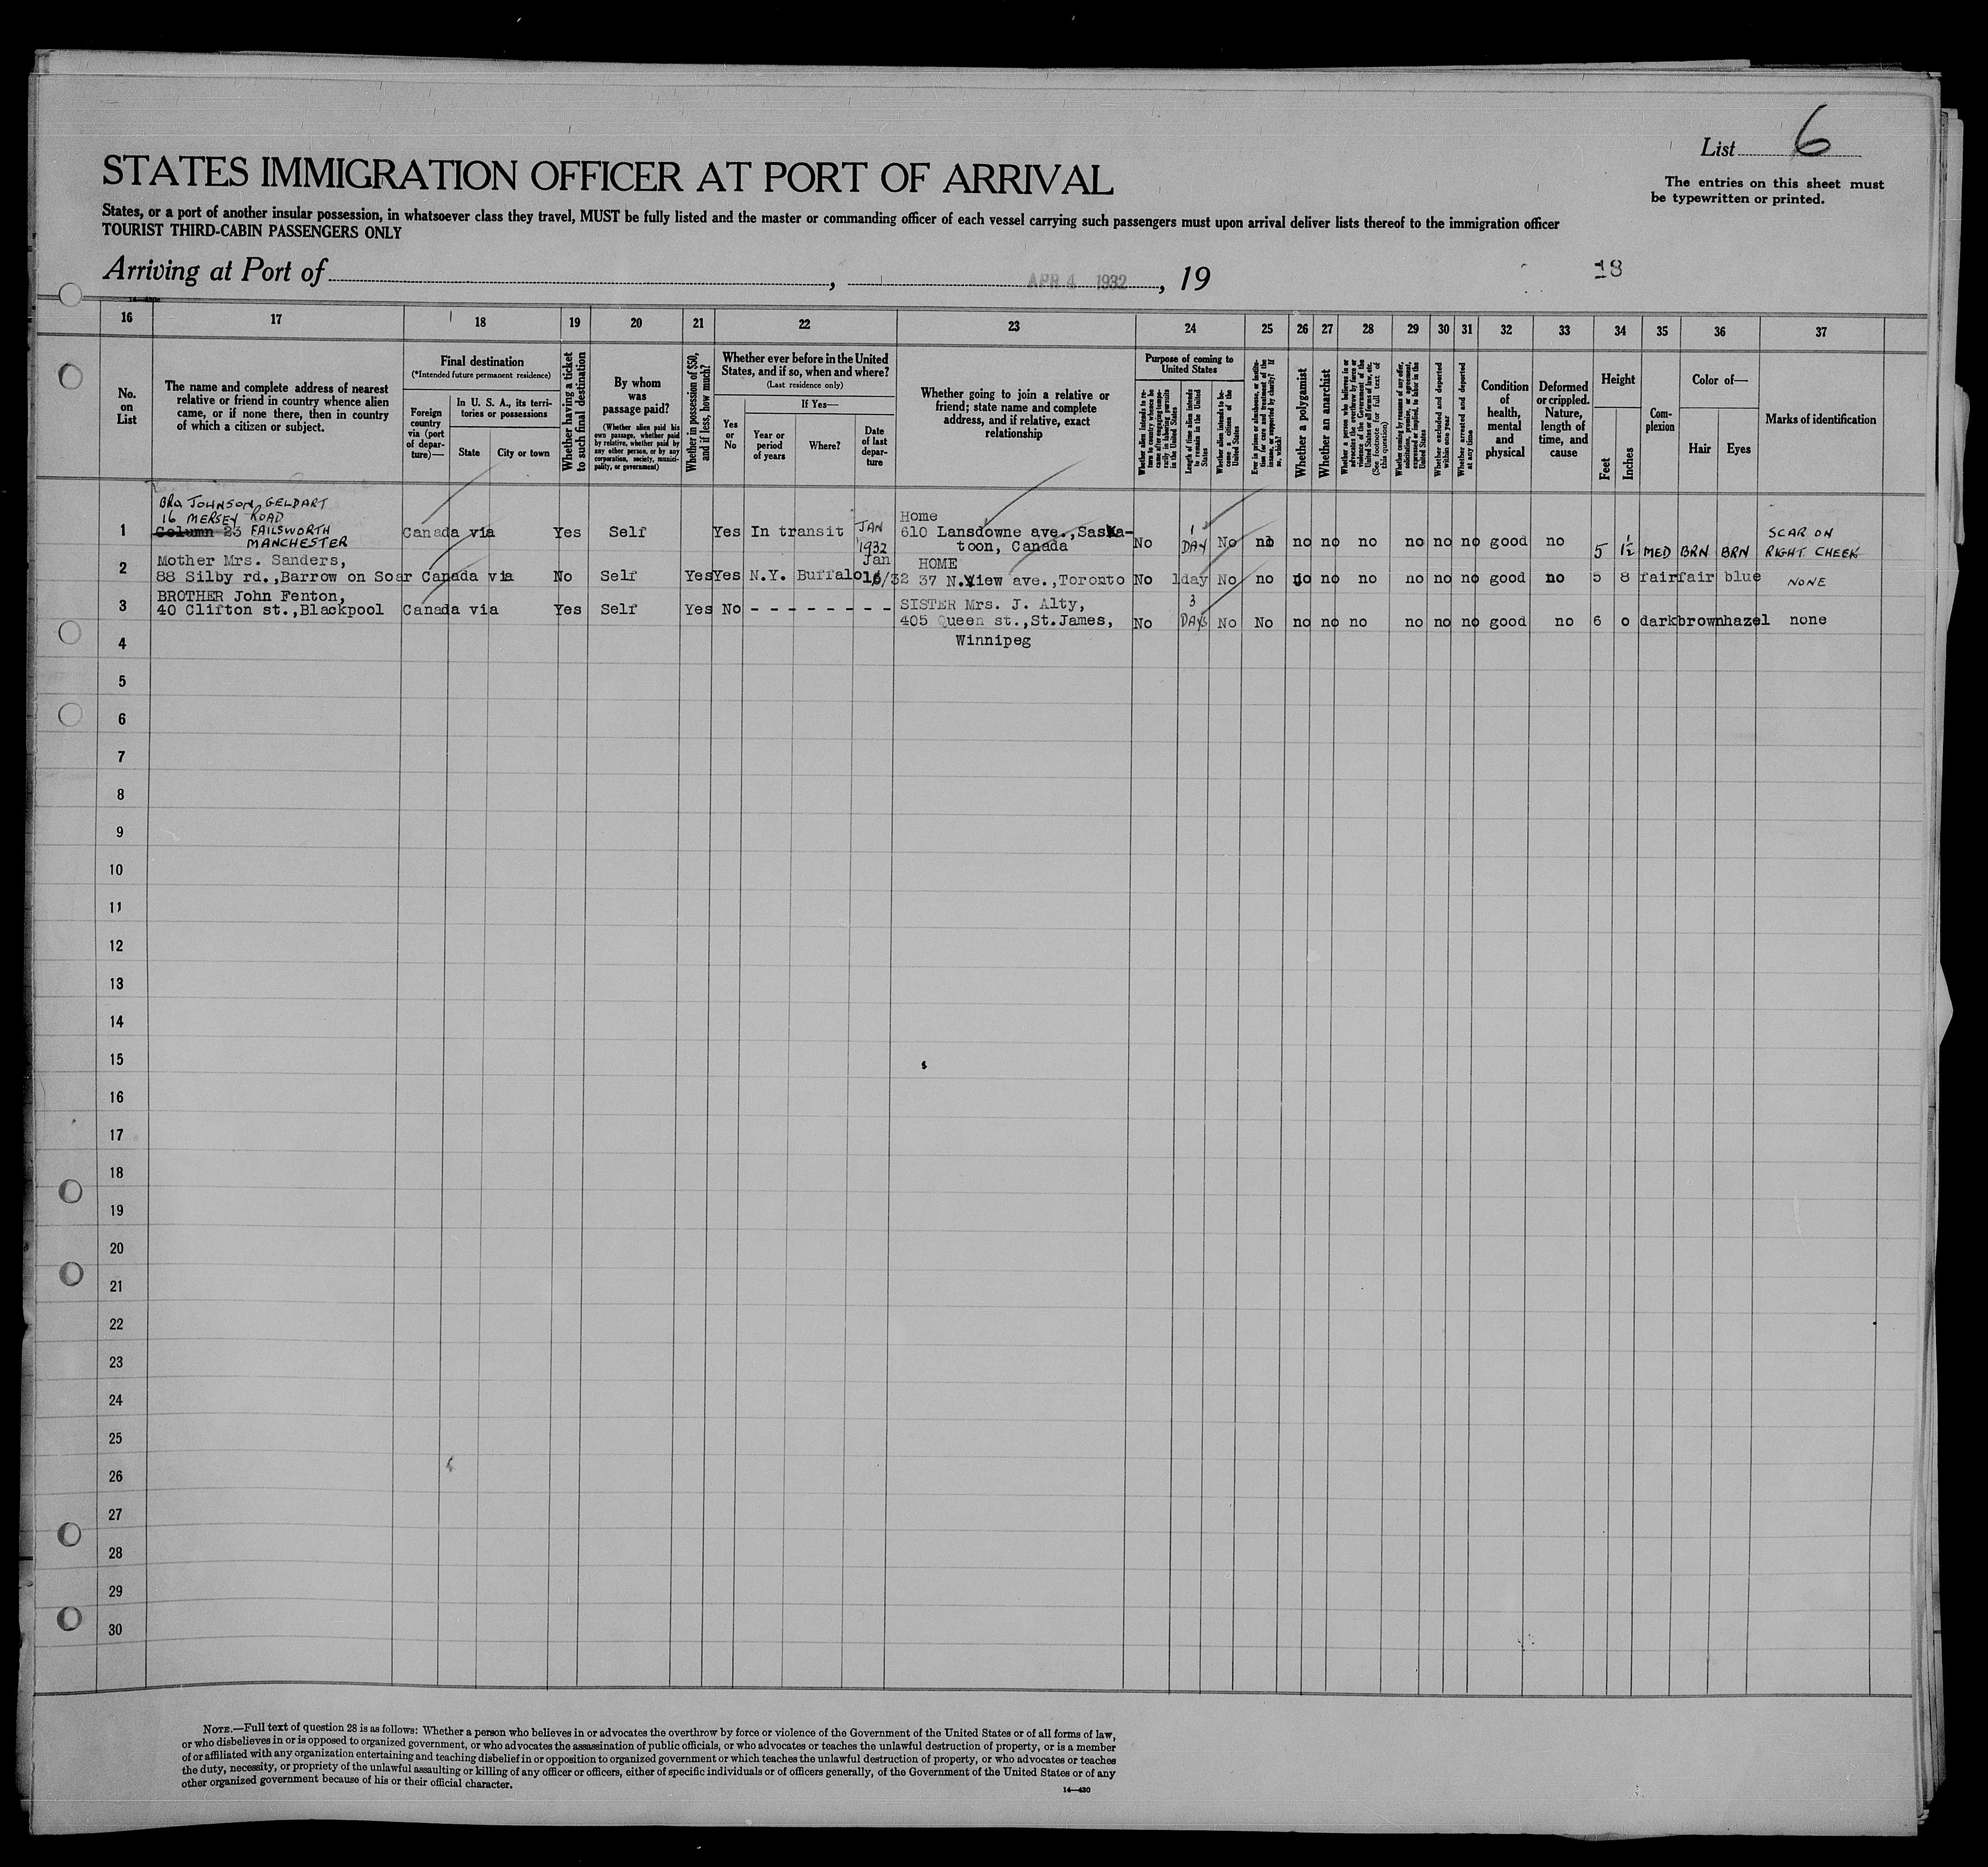 List 6
STATES IMMIGRATION OFFICER AT PORT OF ARRIVAL
The entries on this sheet must
be typewritten or printed.
States, or a port of another insular possession, in whatsoever class they travel, MUST be fully listed and the master or commanding officer of each vessel carrying such passengers must upon arrival deliver lists thereof to the immigration officer
TOURIST THIRD-CABIN PASSENGERS ONLY
Arriving at Port of , APR 4 1932 , 19
18
16 17 18 19 20 21 22 23 24 25 26 27 28 29 30 31 32 33 34 35 36 37
No.
on
List
The name and complete address of nearest
relative or friend in country whence alien
came, or if none there, then in country
of which a citizen or subject.
Final destination
(*Intended future permanent residence)
Foreign
country
via (port
of depar-
ture)—
In U. S. A., its terri-
tories or possessions
State
City or town
Whether having a ticket
to such final destination
By whom
was
passage paid?
(Whether alien paid his
own passage, whether paid
by relative, whether paid by
any other person, or by any
corporation, society, munici-
pality, or government)
Whether in possession of $50,
and if less, how much?
Whether ever before in the United
States, and if so, when and where?
(Last residence only)
Yes
or
No
If Yes—
Year or
period
of years
Where?
Date
of last
depar-
ture
Whether going to join a relative or
friend; state name and complete
address, and if relative, exact
relationship
Purpose of coming to
United States
Whether alien intends to re-
turn to country whence he
came after engaging tempo-
rarily in laboring pursuits
in the United States
Length of time alien intends
to remain in the United
States
Whether alien intends to be-
come a citizen of the
United States
Ever in prison or almshouse, or institu-
tion for care and treatment of the
insane, or supported by charity? If
so, which?
Whether a polygamist
Whether an anarchist
Whether a person who believes in or
advocates the overthrow by force or
violence of the Government of the
United States or all forms of law, etc.
(See footnote for full text of
this question)
Whether coming by reason of any offer,
solicitation, promise, or agreement,
expressed or implied, to labor in the
United States
Whether excluded and deported
within one year
Whether arrested and deported
at any time
Condition
of
health,
mental
and
physical
Deformed
or crippled.
Nature,
length of
time, and
cause
Height
Feet
Inches
Com-
plexion
Color of—
Hair
Eyes
Marks of identification
BRO JOHNSON GELDART
16 MERSEY ROAD
Column 23 FAILSWORTH
MANCHESTER
1 Canada via Yes Self Yes In transit JAN 1932
Home
610 Lansdowne ave.,Saska-
toon, Canada
No 1 DAY No no no no no no no no good no 5 1½ MED BRN BRN SCAR ON
RIGHT CHEEK
Mother Mrs. Sanders,
2 88 Silby rd.,Barrow on Soar Canada via No Self Yes Yes N.Y. Buffalo Jan 16/32
HOME
37 N.View ave.,Toronto No 1day No no no no no no no no good no 5 8 fair fair blue NONE
BROTHER John Fenton,
3 40 Clifton st.,Blackpool Canada via Yes Self Yes No - - - - - - - -
SISTER Mrs. J. Alty,
405 Queen st.,St.James,
Winnipeg
No 3 DAYS No No no no no no no no good no 6 0 dark brown hazel none
4
5
6
7
8
9
10
11
12
13
14
15
16
17
18
19
20
21
22
23
24
25
26
27
28
29
30
NOTE.—Full text of question 28 is as follows: Whether a person who believes in or advocates the overthrow by force or violence of the Government of the United States or of all forms of law,
or who disbelieves in or is opposed to organized government, or who advocates the assassination of public officials, or who advocates or teaches the unlawful destruction of property, or is a member
of or affiliated with any organization entertaining and teaching disbelief in or opposition to organized government or which teaches the unlawful destruction of property, or who advocates or teaches
the duty, necessity, or propriety of the unlawful assaulting or killing of any officer or officers, either of specific individuals or of officers generally, of the Government of the United States or of any
other organized government because of his or their official character.
14—430